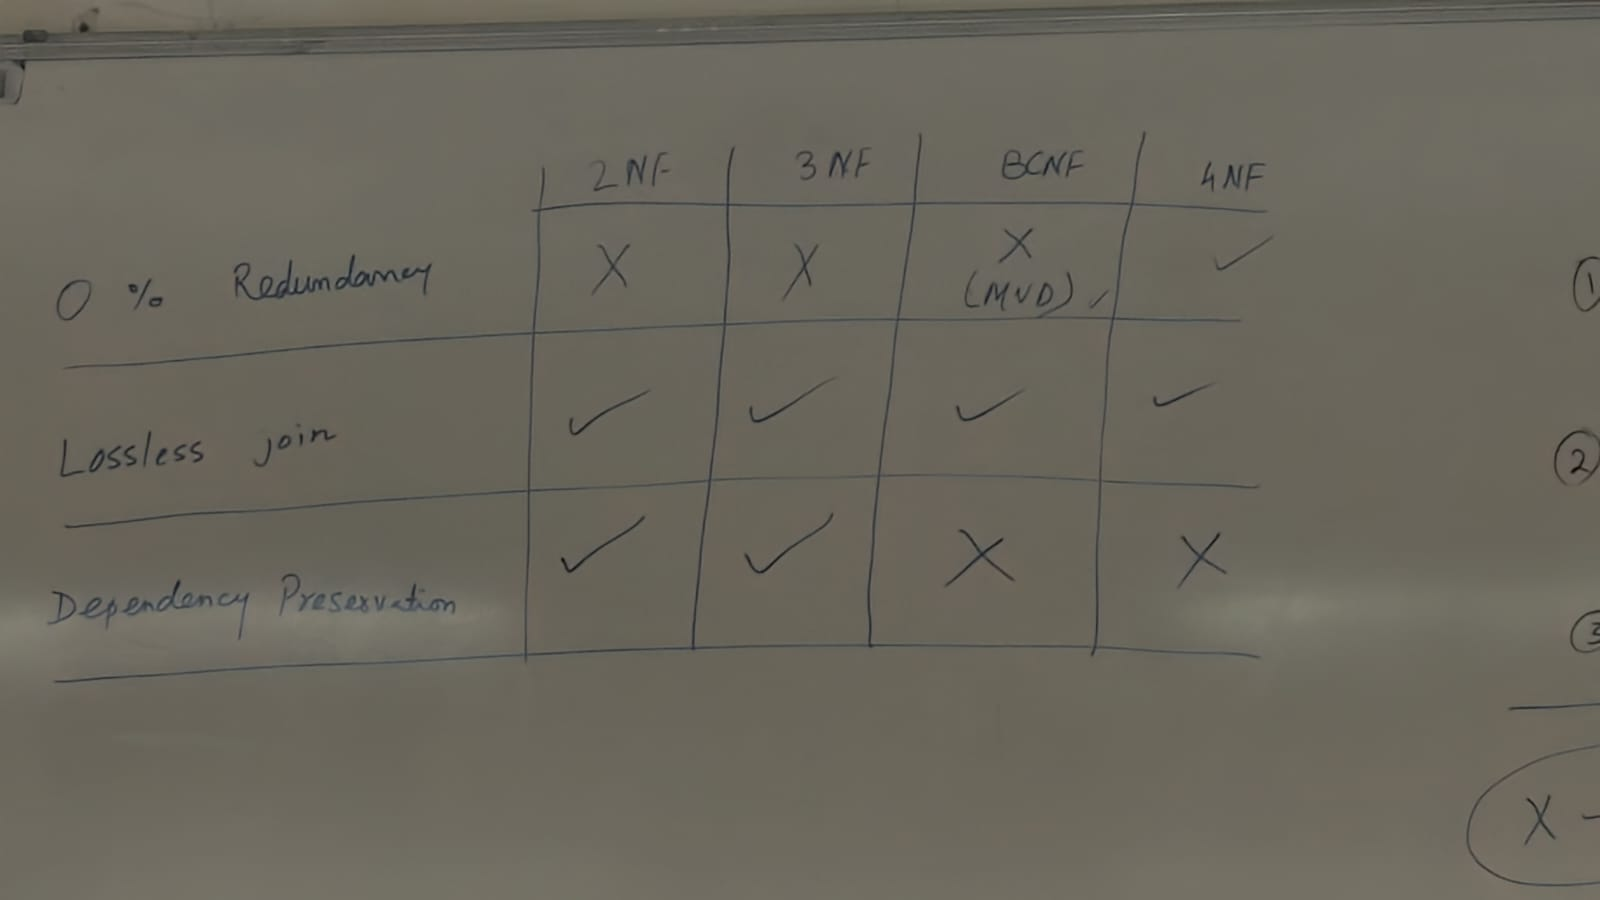 2NF 3NF BCNF 4NF
0 % Redundancy X X X ✓
(MVD) ✓
Lossless join ✓ ✓ ✓ ✓
Dependency Preservation ✓ ✓ X X
①
②
③
X -